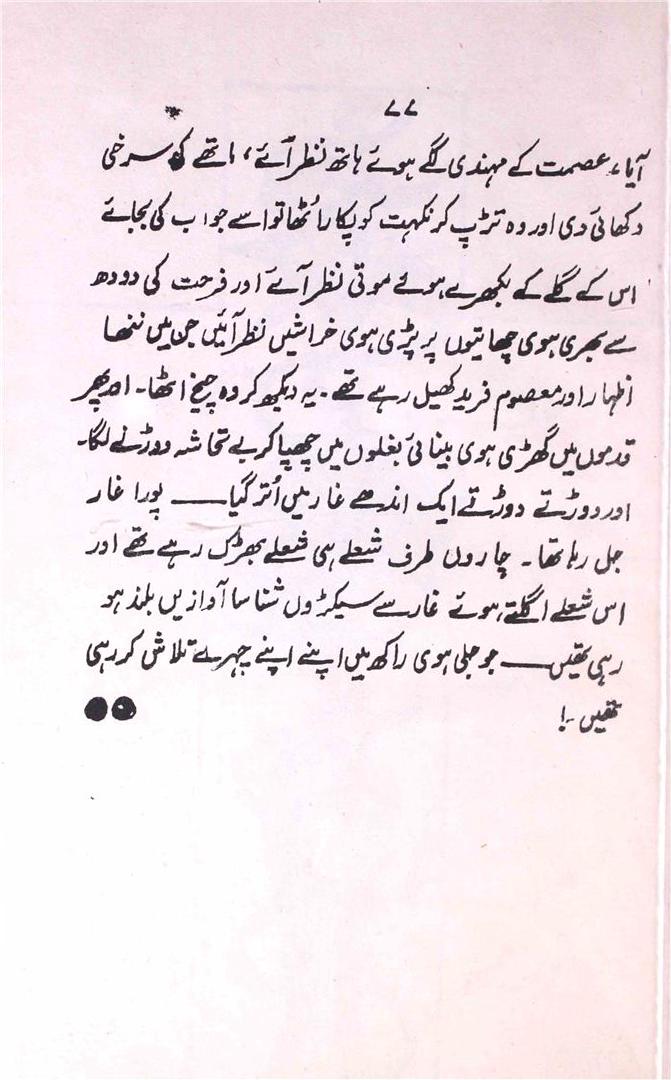 ۷۷
آیا، عصمت کے مہندی لگے ہوئے ہاتھ نظر آئے، ماتھے کی سرخی
دکھائی دی اور وہ تڑپ کر نکہت کو پکار اُٹھا تو اسے جواب کی بجائے
اس کے گلے کے بکھرے ہوئے موتی نظر آئے اور فرحت کی دودھ
سے بھری ہوی چھاتیوں پر پڑی ہوی خراشیں نظر آئیں جن میں ننھا
اظہار اور معصوم فرید کھیل رہے تھے۔ یہ دیکھ کر وہ چیخ اٹھا۔ اور پھر
قدموں میں گھڑی ہوی بینائی بغلوں میں چھپا کر بے تحاشہ دوڑنے لگا۔
اور دوڑتے دوڑتے ایک اندھے غار میں اُتر گیا ــــ پورا غار
جل رہا تھا۔ چاروں طرف شعلے ہی شعلے بھڑک رہے تھے اور
اس شعلے اگلتے ہوئے غار سے سیکڑوں شناسا آوازیں بلند ہو
رہی تھیں ــــ جو جلی ہوی راکھ میں اپنے اپنے چہرے تلاش کر رہی
تھیں۔!